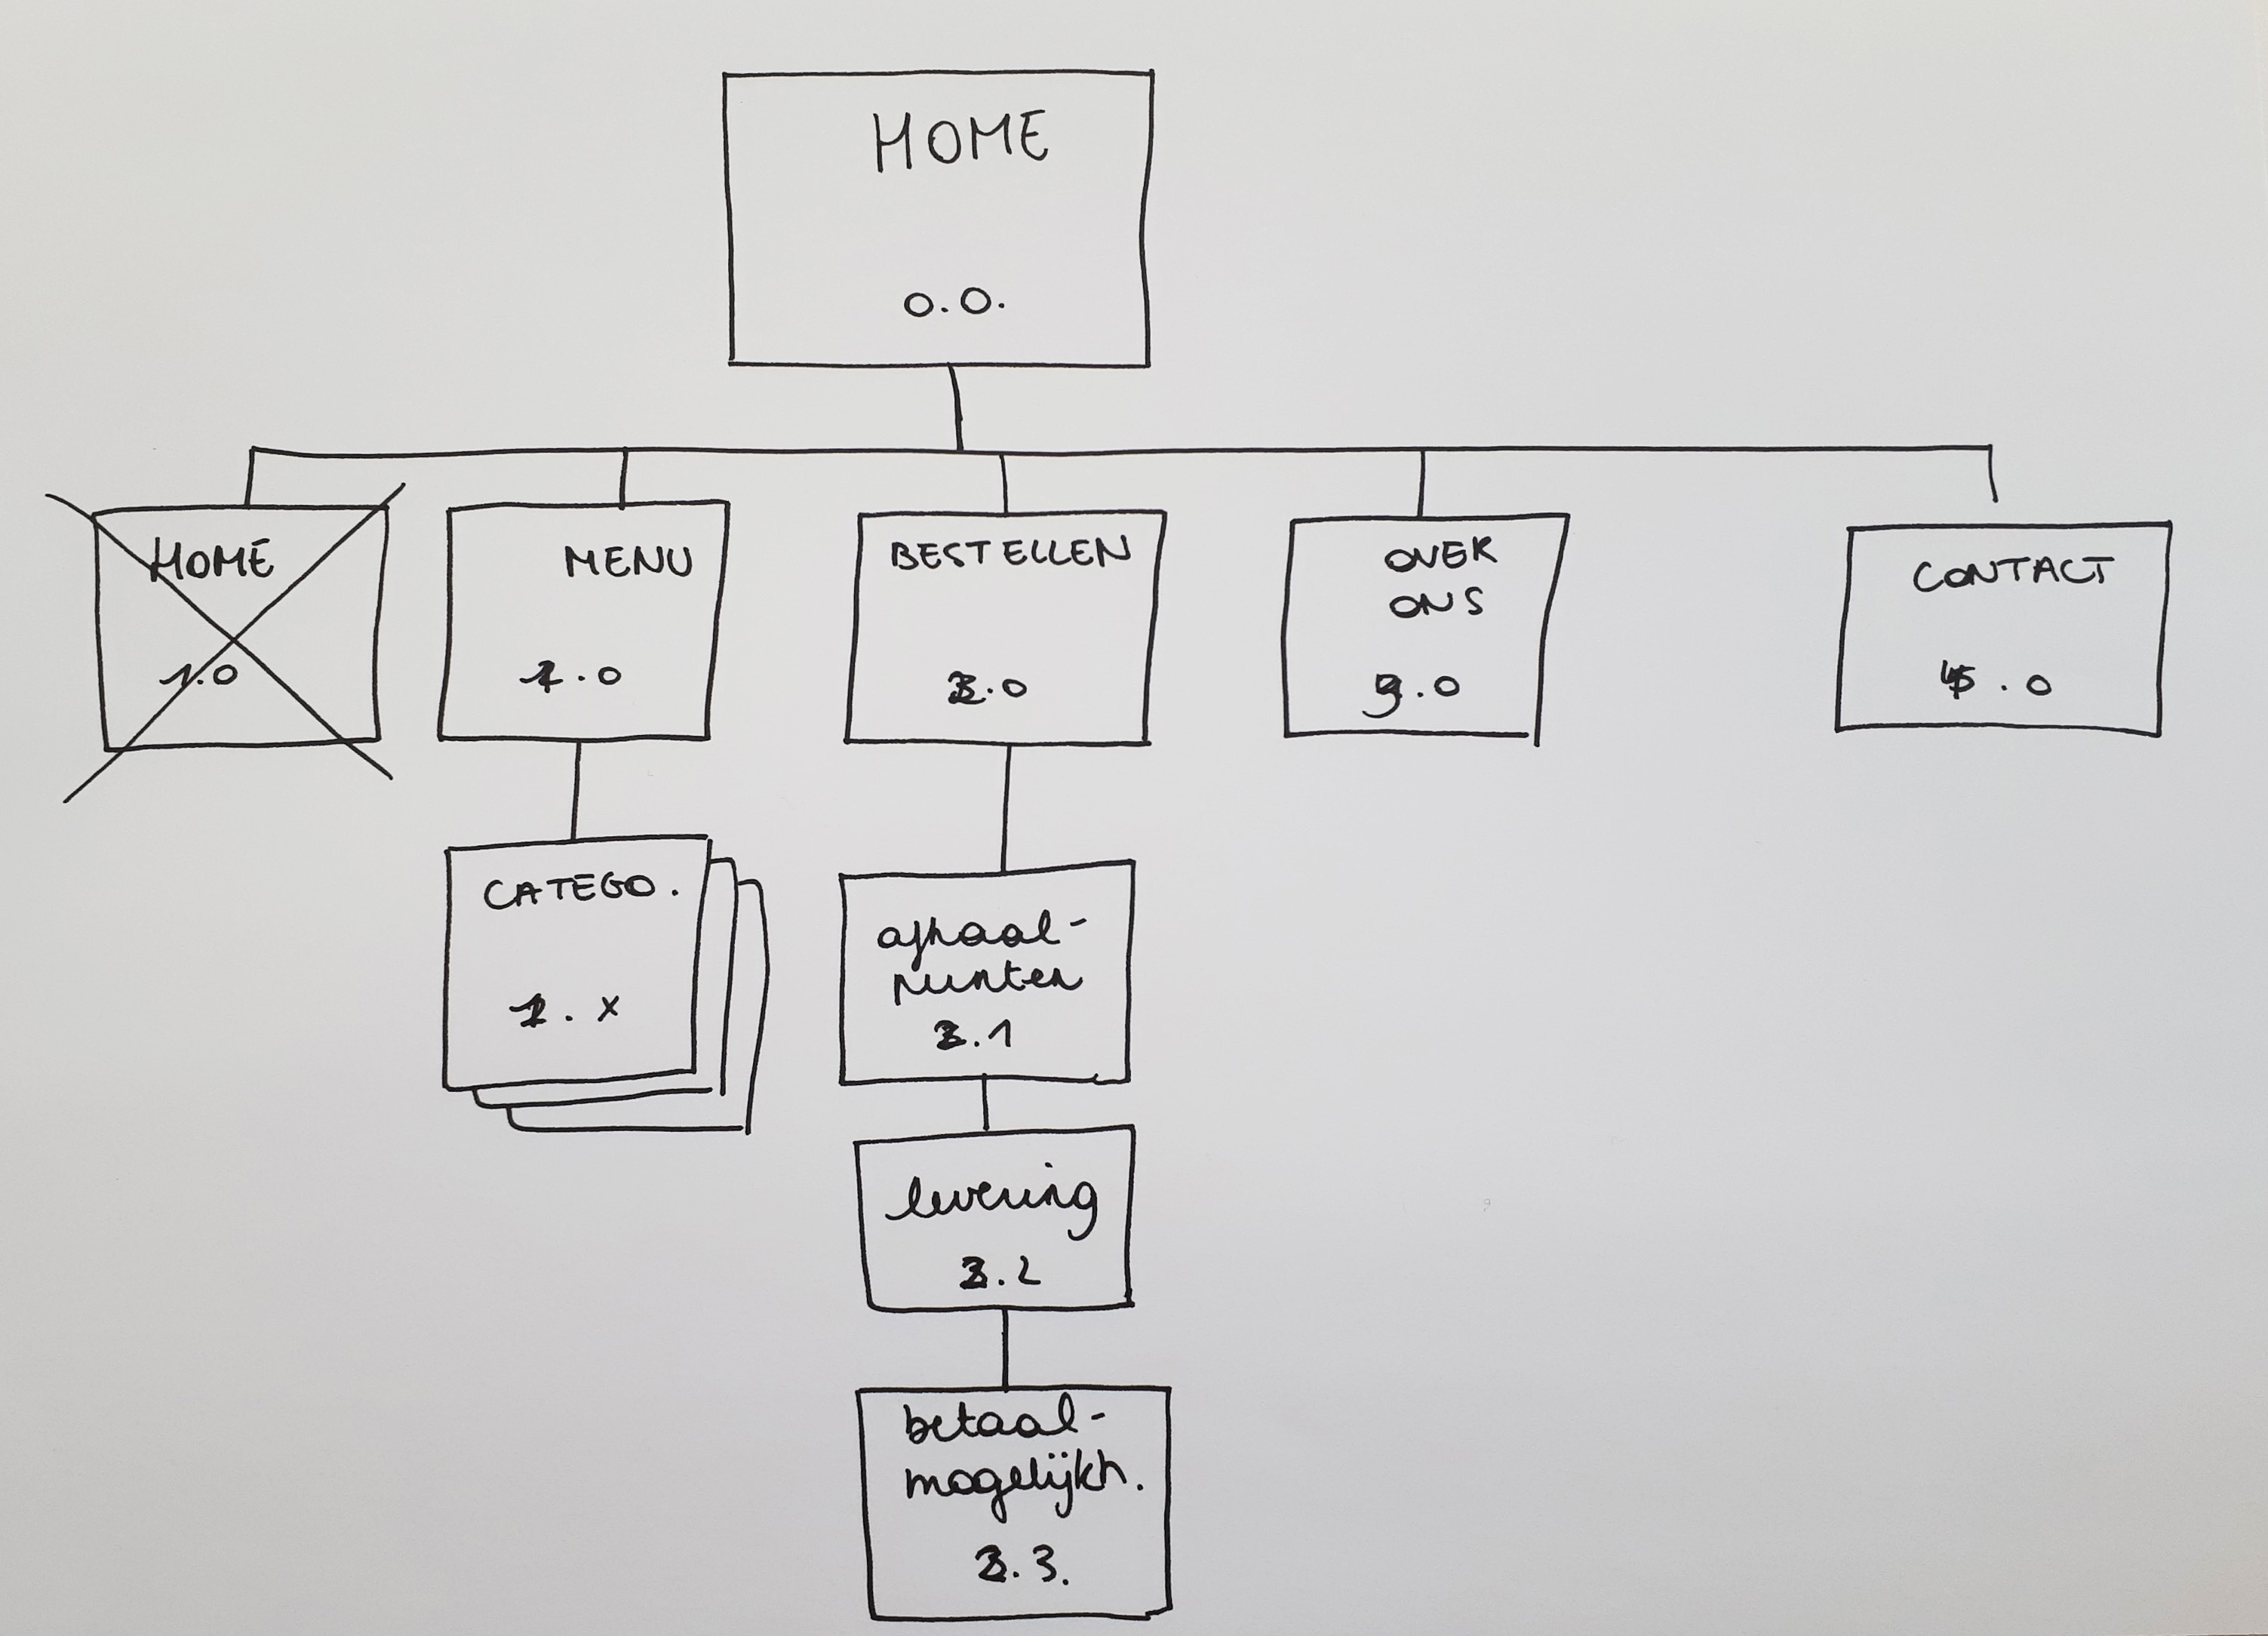 HOME
0.0.
HOME
1.0
MENU
1.0
BESTELLEN
2.0
OVER
ONS
3.0
CONTACT
4.0
CATEGO.
1.x
afhaal-
punten
2.1
levering
2.2
betaal-
mogelijkh.
2.3.